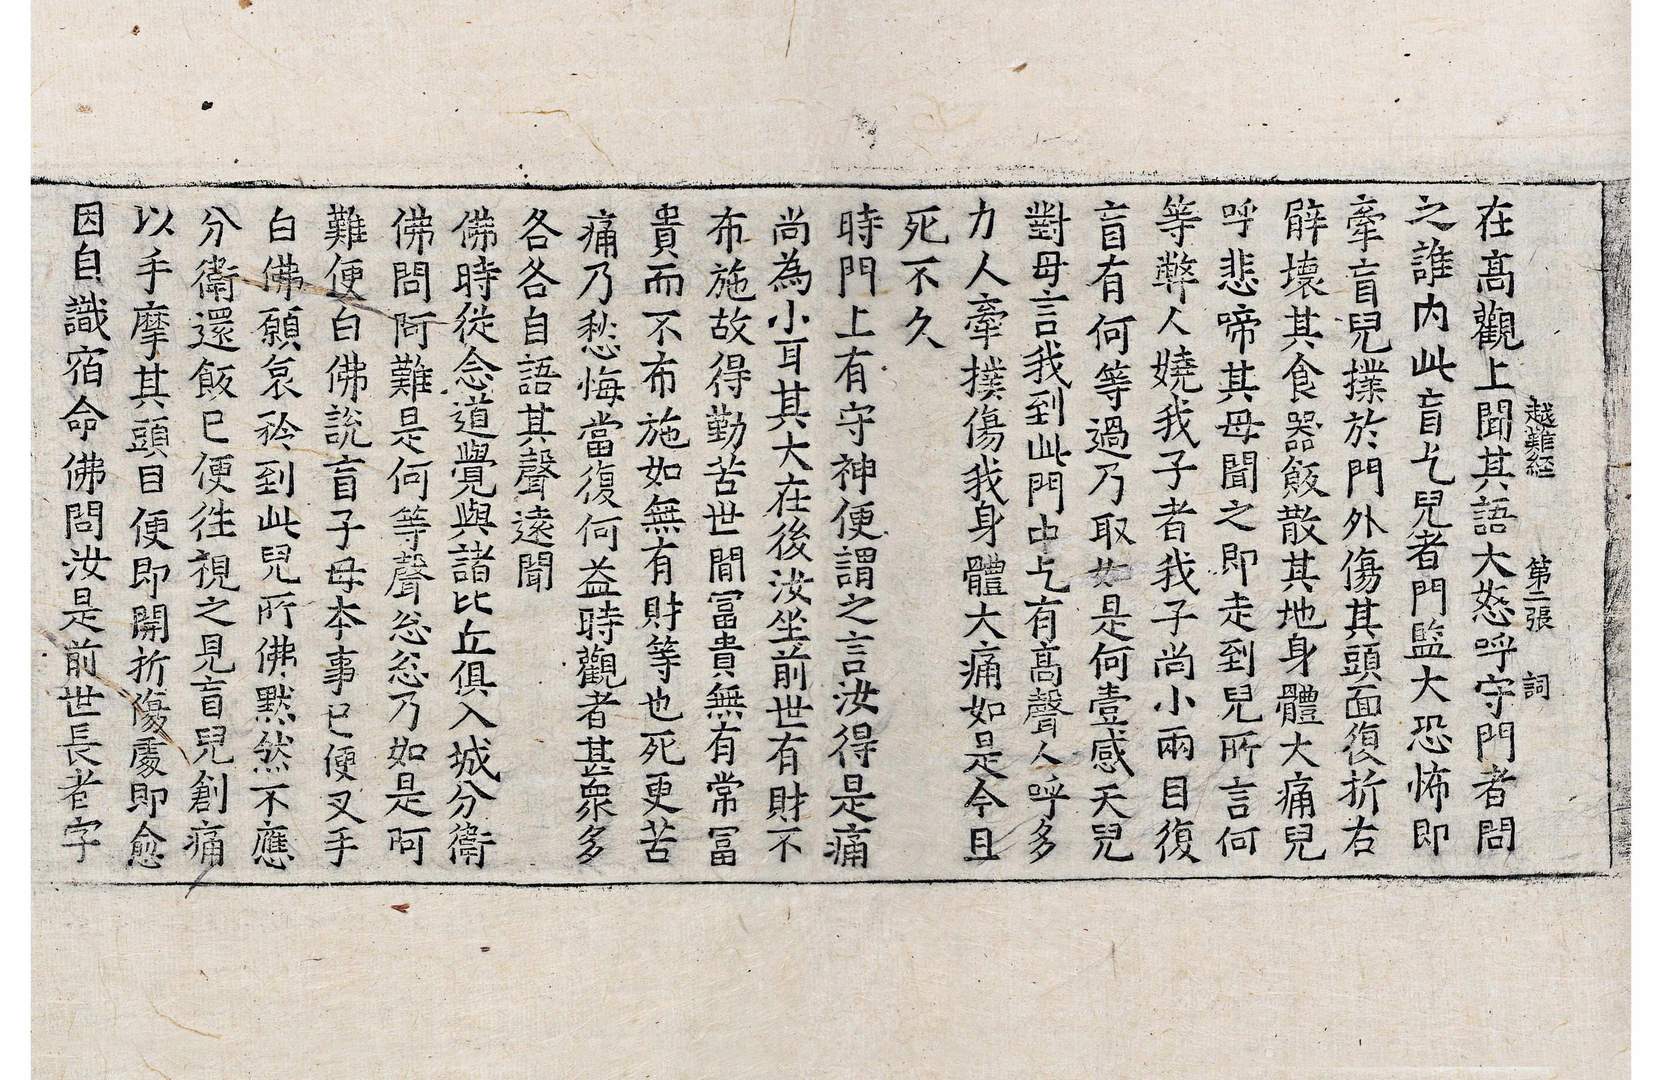 越難經　第二張　詞
在高觀上聞其語大怒呼守門者問
之誰内此盲乞兒者門監大恐怖即
牽盲兒撲於門外傷其頭面復折右
臂壞其食器飯散其地身體大痛兒
呼悲啼其母聞之即走到兒所言何
等弊人嬈我子者我子尚小兩目復
盲有何等過乃取如是何壹感天兒
對母言我到此門中乞有高聲人呼多
力人牽撲傷我身體大痛如是今且
死不久
時門上有守神便謂之言汝得是痛
尚為小耳其大在後汝坐前世有財不
布施故得勤苦世間冨貴無有常冨
貴而不布施如無有財等也死更苦
痛乃愁悔當復何益時觀者甚衆多
各各自語其聲遠聞
佛時從念道覺與諸比丘俱入城分衛
佛問阿難是何等聲忩忩乃如是阿
難便白佛說盲子母本事已便叉手
白佛願哀矜到此兒所佛默然不應
分衛還飯已便徃視之見盲兒創痛
以手摩其頭目便即開折傷處即愈
因自識宿命佛問汝是前世長者字